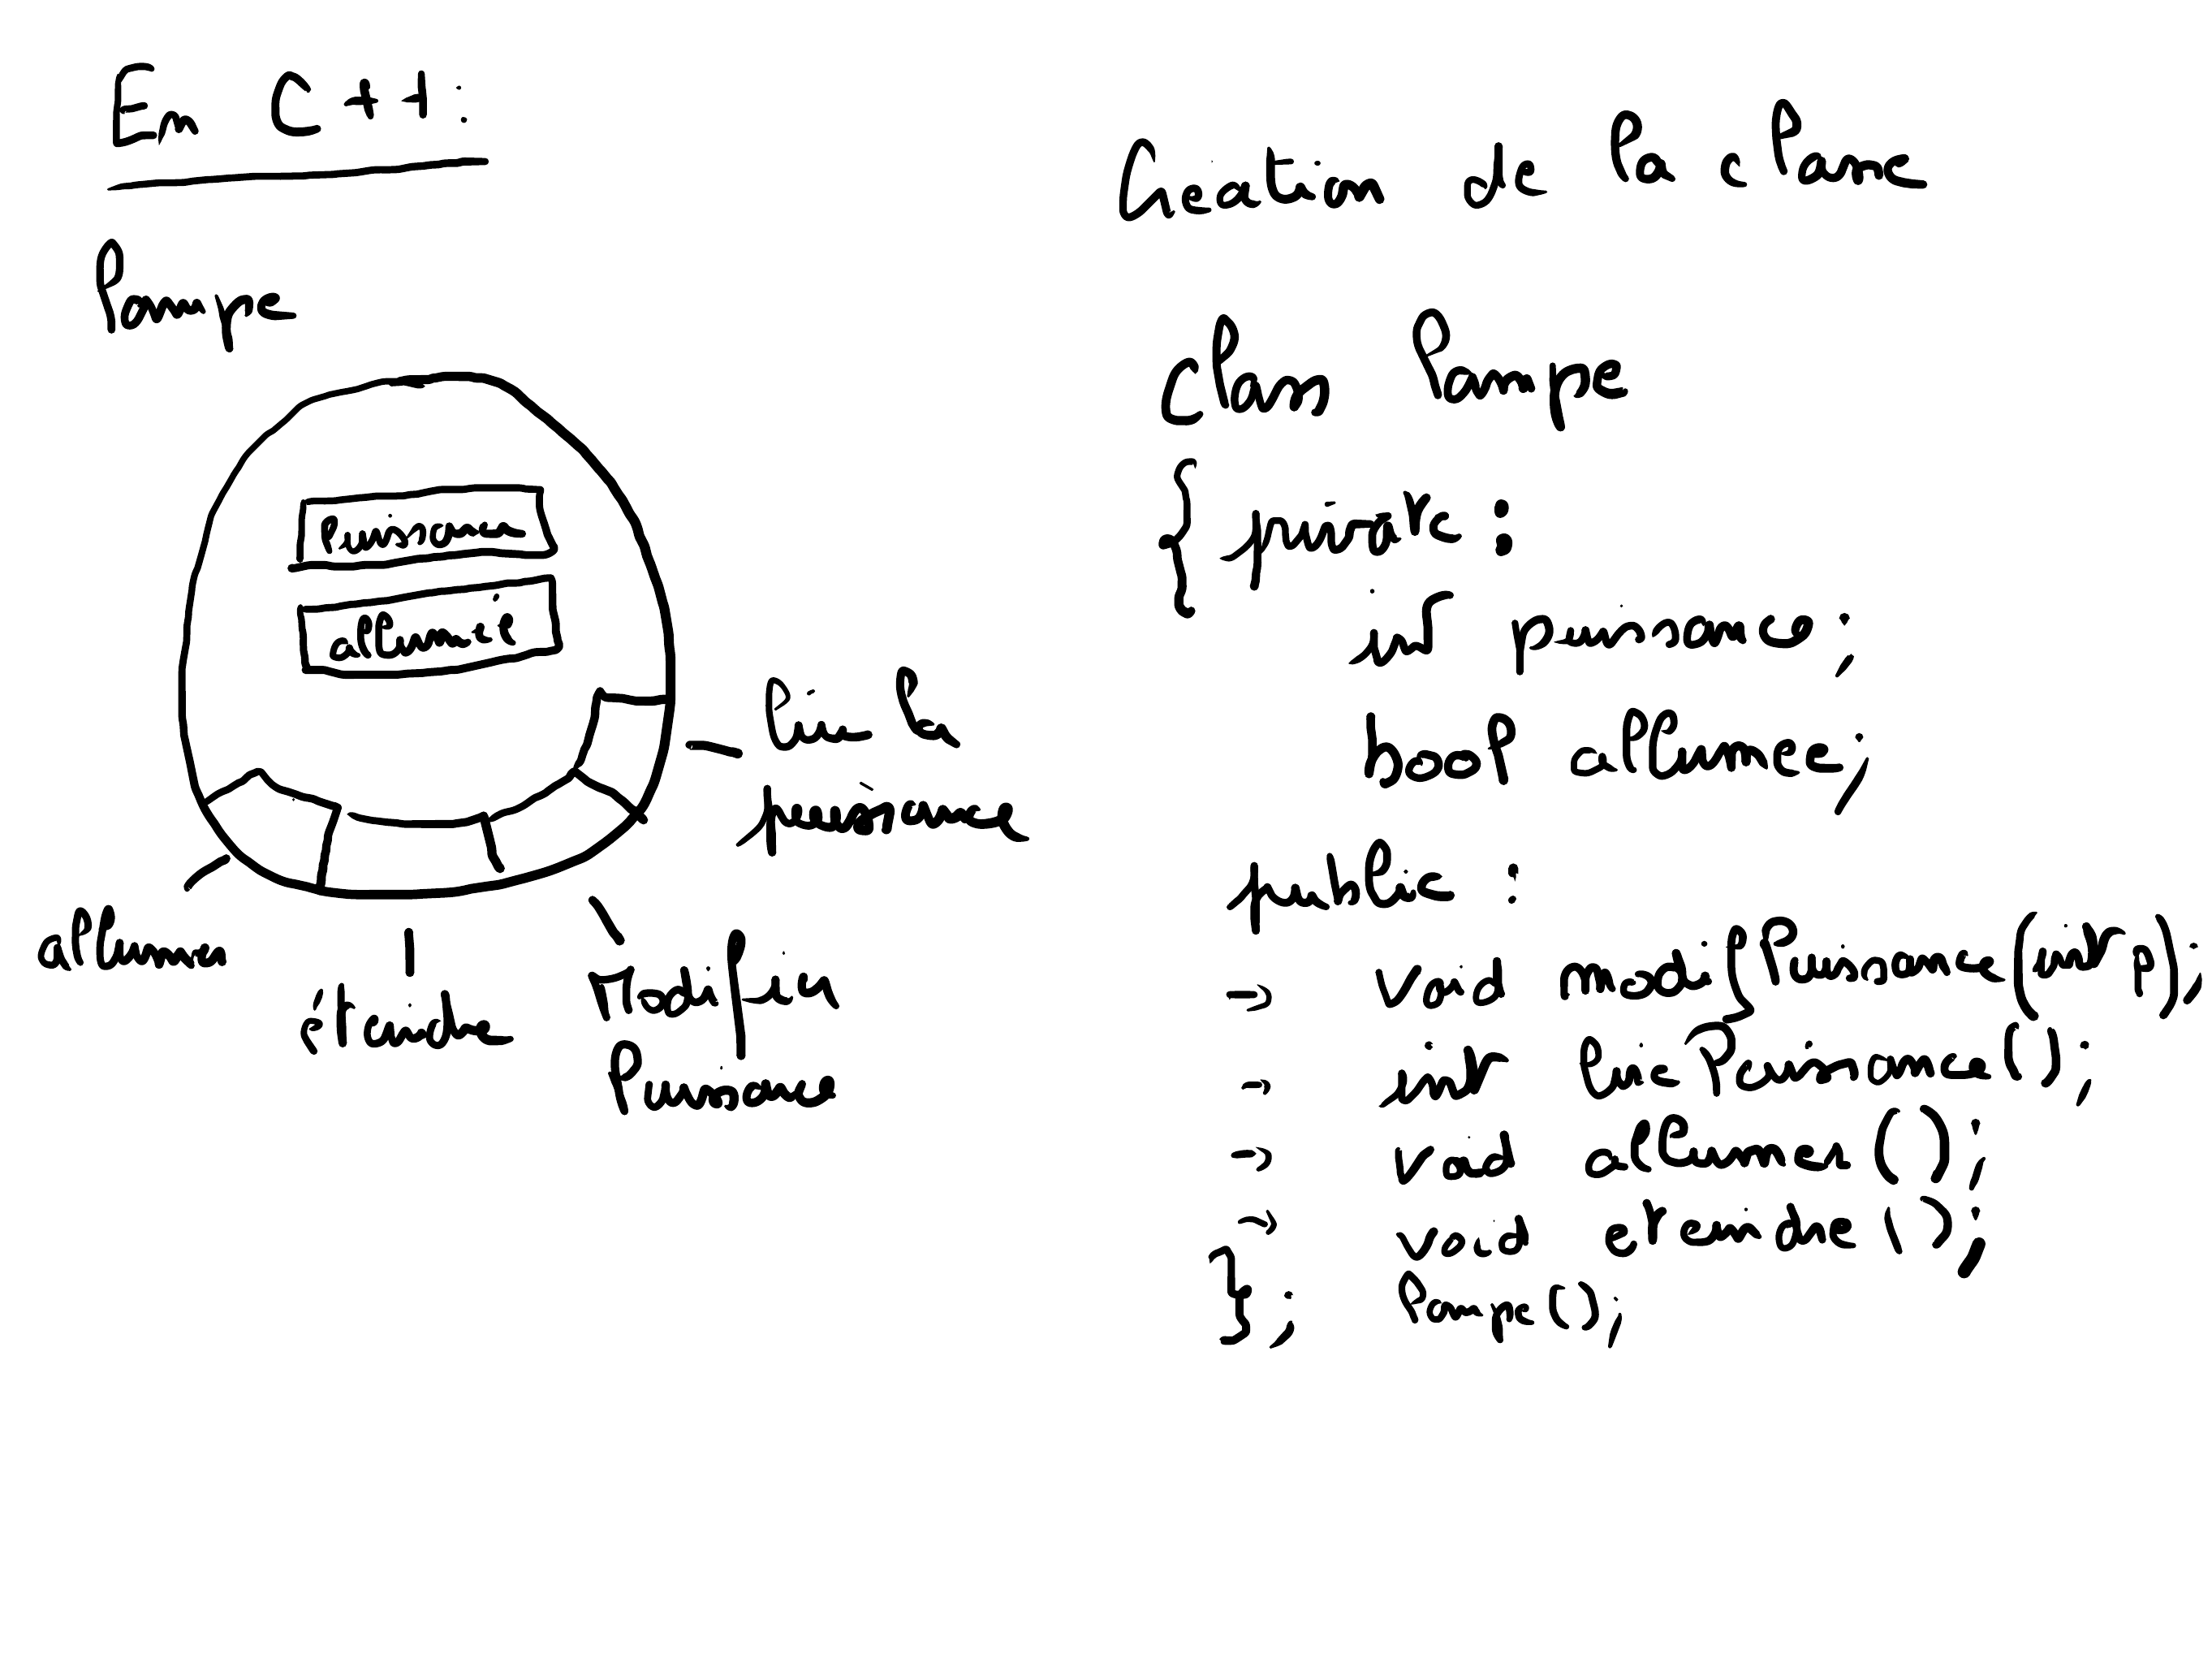 En C++:
Pompe
Puissance
allumée
Lire la
puissance
allumer
éteindre
Modifier
Puissance
Création de la classe
class Pompe
{ private :
int puissance;
bool allumee;
public :
-> void modifPuissance(int p);
-> int lirePuissance();
-> void allumer();
-> void eteindre();
}; Pompe();